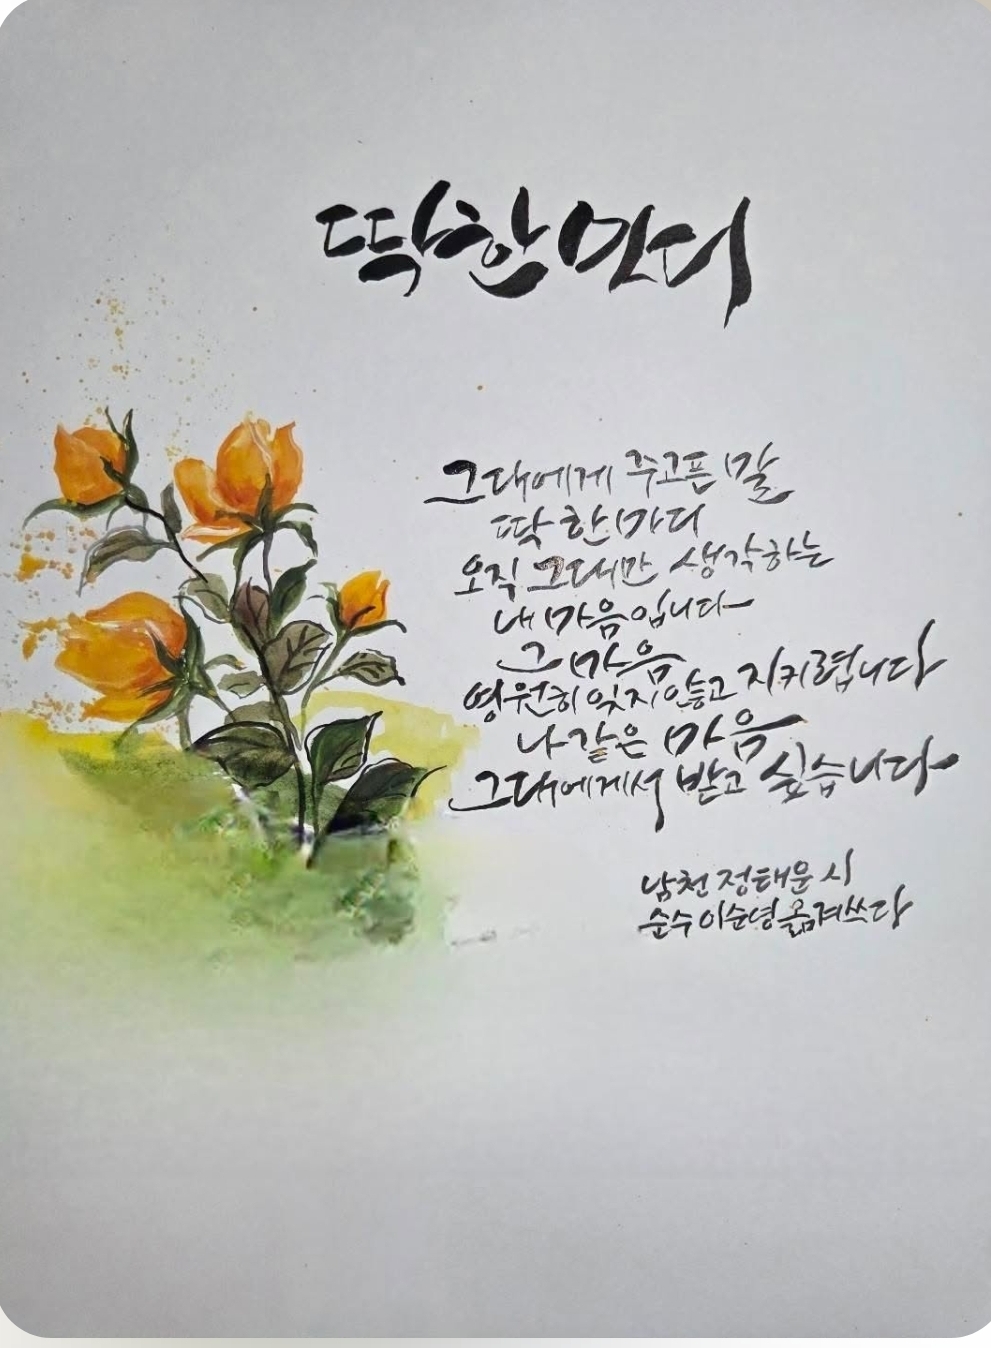 딱 한 마디
그대에게 주고픈 말
딱 한 마디
오직 그대만 생각하는
내 마음입니다
그 마음
영원히 잊지 않고 지키렵니다
나 같은 마음
그대에게서 받고 싶습니다
남천 정태운 시
순수 이순영 옮겨쓰다